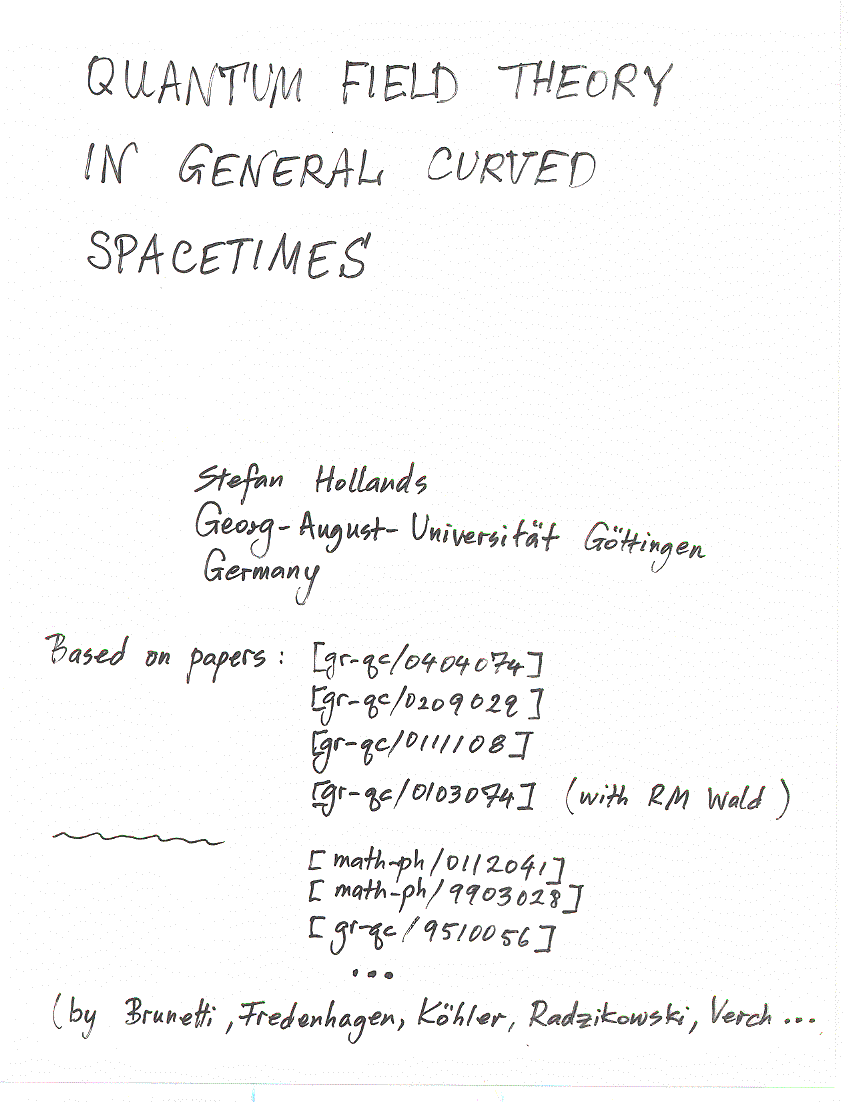 QUANTUM FIELD THEORY
IN GENERAL CURVED
SPACETIMES
Stefan Hollands
Georg-August-Universität Göttingen
Germany
Based on papers: [gr-qc/0404074]
[gr-qc/0209029]
[gr-qc/0111108]
[gr-qc/0103074] (with RM Wald)
[math-ph/0112041]
[math-ph/9903028]
[gr-qc/9510056]
...
(by Brunetti, Fredenhagen, Köhler, Radzikowski, Verch ...